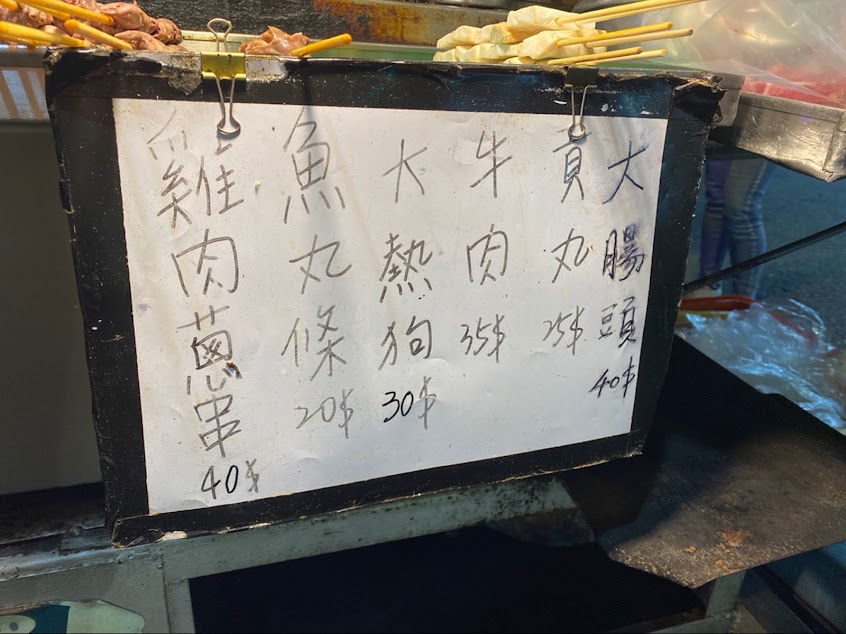 大腸頭 40$
貢丸 25$
牛肉 35$
大熱狗 30$
魚丸條 20$
雞肉蔥串 40$